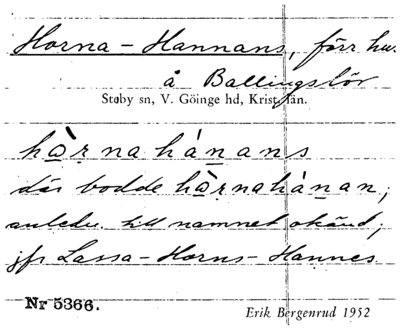 Horna-Hannans, förr hus
å Ballingslöv
Stoby sn, V. Göinge hd, Krist. län.
hò̱ṛnahá̱nans
där bodde hò̱ṛnahà̱nan;
anledn. till namnet okänd;
jfr Lassa-Horns-Hannes
Nr 5366.
Erik Bergenrud 1952